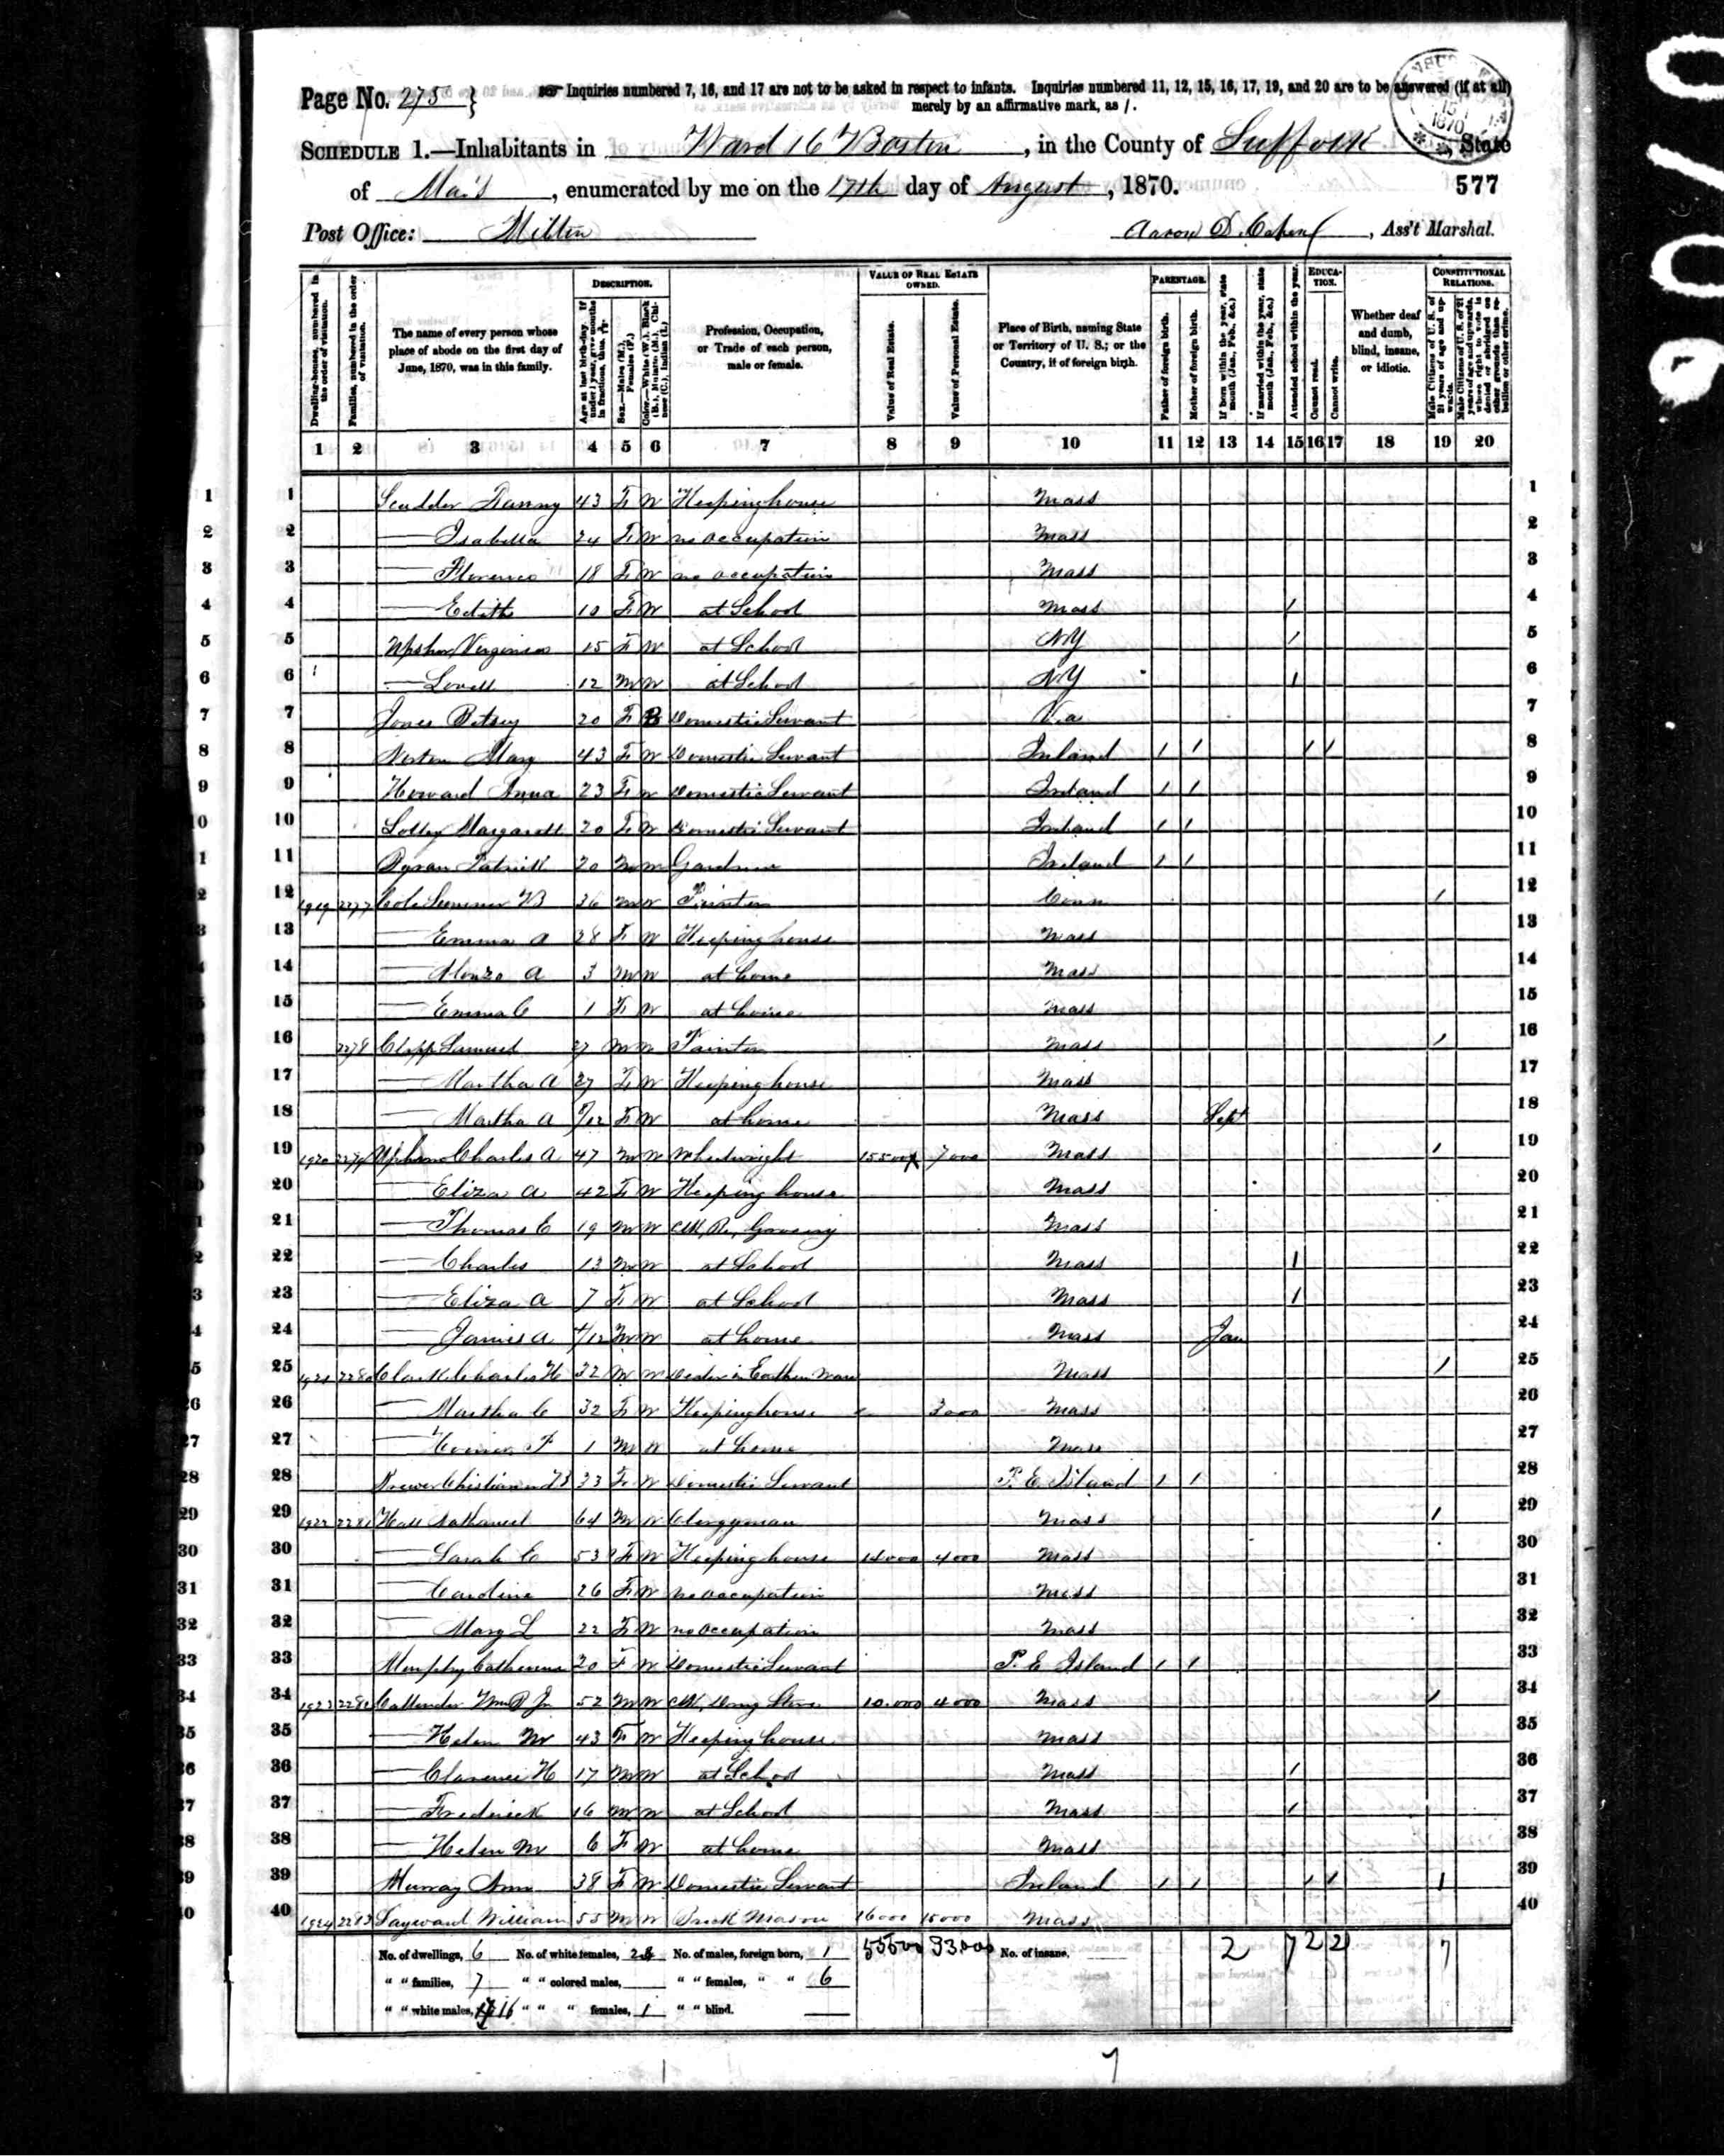 Page No. 275 } Inquiries numbered 7, 16, and 17 are not to be asked in respect to infants. Inquiries numbered 11, 12, 15, 16, 17, 19, and 20 are to be answered (if at all)
merely by an affirmative mark, as /.
SCHEDULE 1.—Inhabitants in Ward 16 Boston, in the County of Suffolk, State
of Mass, enumerated by me on the 17th day of August, 1870. 577
Post Office: Milton Aaron D. Capen, Ass't Marshal.
Dwelling-houses, numbered in the order of visitation.
Families, numbered in the order of visitation.
The name of every person whose place of abode on the first day of June, 1870, was in this family.
DESCRIPTION.
Age at last birth-day. If under 1 year, give months in fractions, thus,
Sex.—Males (M.), Females (F.)
Color.—White (W.), Black (B.), Mulatto (M.), Chinese (C.), Indian (I.)
Profession, Occupation, or Trade of each person, male or female.
VALUE OF REAL ESTATE OWNED.
Value of Real Estate.
Value of Personal Estate.
Place of Birth, naming State or Territory of U. S.; or the Country, if of foreign birth.
PARENTAGE.
Father of foreign birth.
Mother of foreign birth.
If born within the year, state month (Jan., Feb., &c.)
If married within the year, state month (Jan., Feb., &c.)
EDUCATION.
Attended school within the year.
Cannot read.
Cannot write.
Whether deaf and dumb, blind, insane, or idiotic.
CONSTITUTIONAL RELATIONS.
Male Citizens of U. S. of 21 years of age and upwards.
Male Citizens of U. S. of 21 years of age and upwards, whose right to vote is denied or abridged on other grounds than rebellion or other crime.
1 2 3 4 5 6 7 8 9 10 11 12 13 14 15 16 17 18 19 20
1 Scudder Fanny 43 F W Keeping house Mass 1
2 — Isabella 24 F W no occupation Mass 2
3 — Florence 18 F W no occupation Mass 3
4 — Edith 10 F W at School Mass / 4
5 Upshur Virginia 15 F W at School NY / 5
6 — Lovell 12 M W at School NY / 6
7 Jones Betsey 20 F B Domestic Servant Va 7
8 Norton Mary 43 F W Domestic Servant Ireland / / / / 8
9 Howard Anna 23 F W Domestic Servant Ireland / / 9
10 Margarett 20 F W Domestic Servant Ireland / / 10
11 Patrick 20 M W Ireland / / 11
12 1919 2277 Cole Sumner W 36 M W Conn / 12
13 — Emma A 28 F W Keeping house Mass 13
14 — Alonzo A 3 M W at home Mass 14
15 — Emma C 1 F W at home Mass 15
16 2278 Clapp Samuel 27 M W Painter Mass / 16
17 — Martha A 27 F W Keeping house Mass 17
18 — Martha A /12 F W at home Mass Sept 18
19 1920 2279 Upham Charles A 47 M W Wheelwright 15500 7000 Mass / 19
20 — Eliza A 42 F W Keeping house Mass 20
21 — Thomas E 19 M W Clk, Grocery Mass 21
22 — Charles 13 M W at School Mass / 22
23 — Eliza A 7 F W at School Mass / 23
24 — James A 4/12 M W at home Mass Jan 24
25 1921 2280 Clark Charles H 32 M W Dealer in Earthen Ware Mass / 25
26 — Martha C 32 F W Keeping house 3000 Mass 26
27 — F 1 M W at home Mass 27
28 33 F W Domestic Servant P. E. Island / / 28
29 1922 2281 Hall Nathaniel 64 M W Clergyman Mass / 29
30 — Sarah E 53 F W Keeping house 14000 4000 Mass 30
31 — Caroline 26 F W no occupation Mass 31
32 — Mary L 22 F W no occupation Mass 32
33 Murphy Catherine 20 F W Domestic Servant P. E Island / / 33
34 1923 2282 Callender Wm B Jr 52 M W Clk, Drug Store 10.000 4000 Mass / 34
35 — Helen M 43 F W Keeping house Mass 35
36 — Clarence H 17 M W at School Mass / 36
37 — Frederick 16 M W at School Mass / 37
38 — Helen M 6 F W at home Mass 38
39 Murray Ann 38 F W Domestic Servant Ireland / / / / / 39
40 1924 2283 Sayward William 55 M W Brick Mason 16000 15000 Mass 40
No. of dwellings, 6 No. of white females, No. of males, foreign born, 1 55500 33000 No. of insane, 2 7 2 2 7
" " families, 7 " " colored males, " " females, " " 6
" " white males, 16 " " " females, 1 " " blind.
7